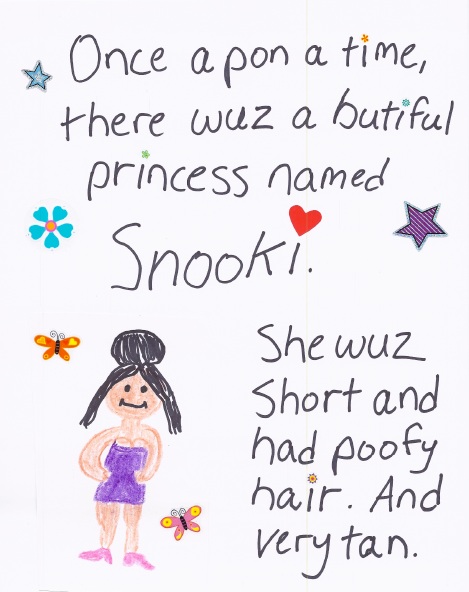 Once apon a time,
there wuz a butiful
princess named
Snooki.
She wuz
Short and
had poofy
hair. And
very tan.